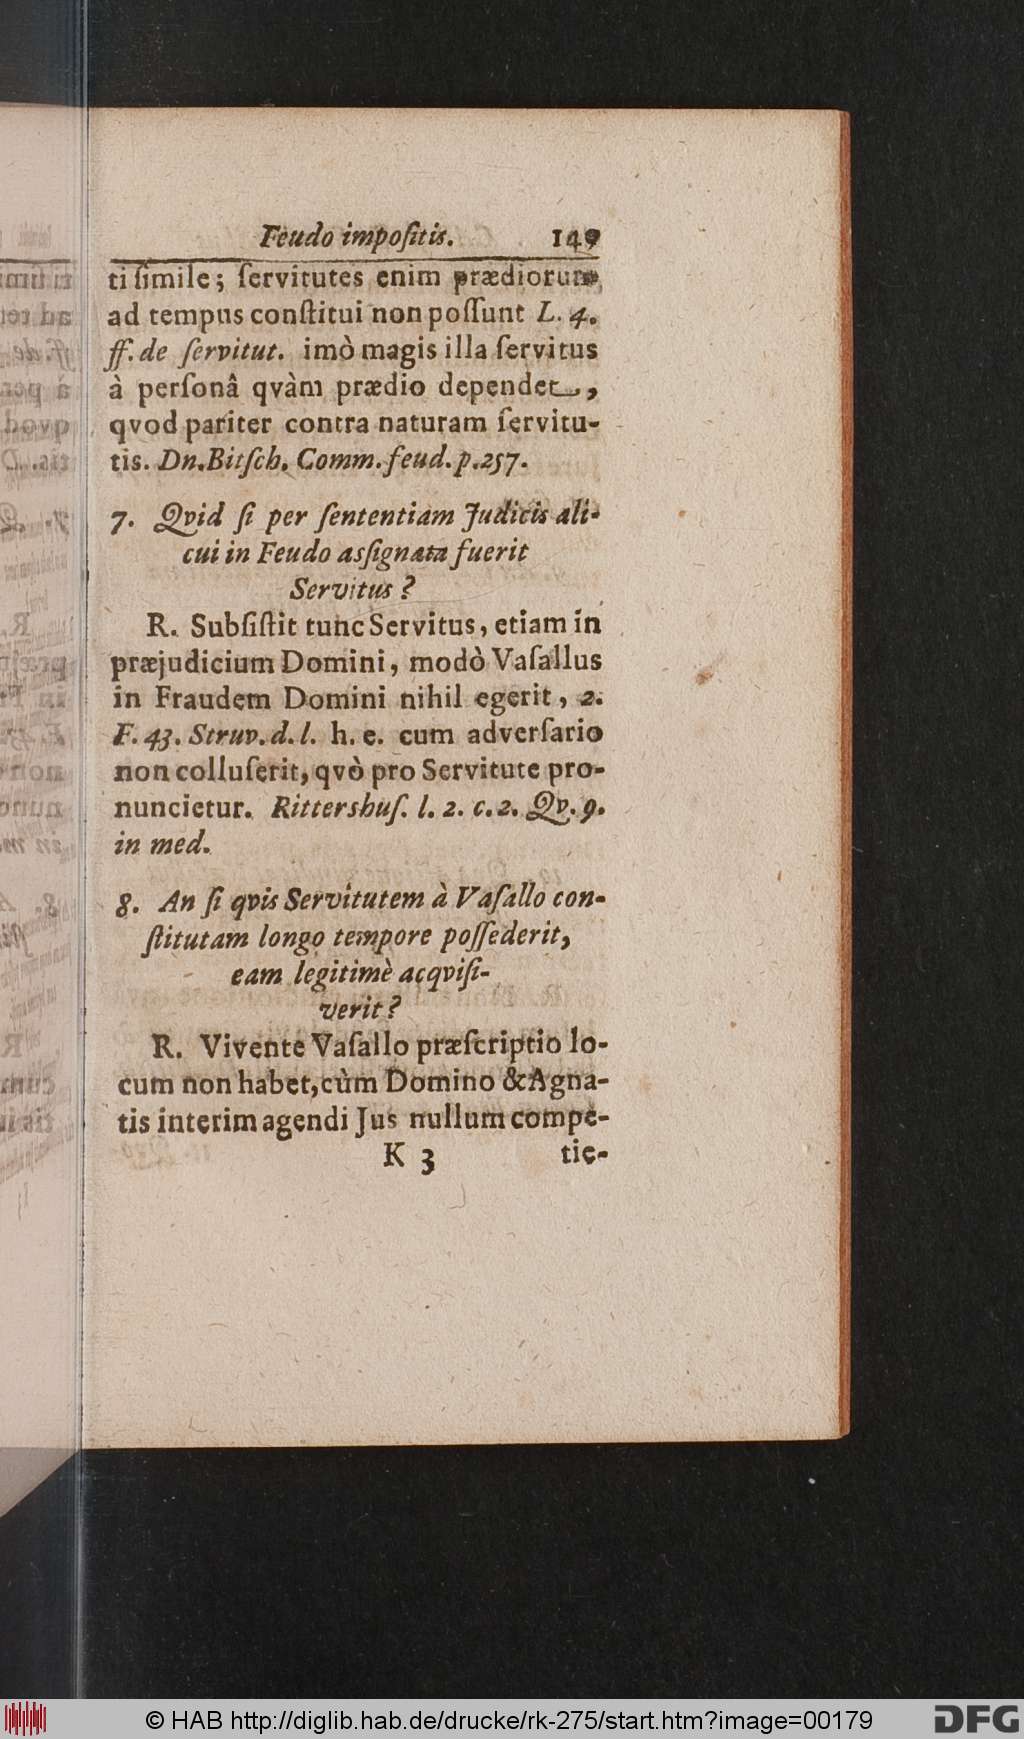 Feudo impoſitis. 149
ti ſimile; ſervitutes enim prædiorum
ad tempus conſtitui non poſſunt L. 4.
ff. de ſervitut. imò magis illa ſervitus
à perſonâ qvàm prædio dependet,
qvod pariter contra naturam ſervitu-
tis. Dn. Bitſch. Comm. feud. p. 257.
7. Qvid ſi per ſententiam Judicis ali-
cui in Feudo asſignata fuerit
Servitus?
R. Subſiſtit tunc Servitus, etiam in
præjudicium Domini, modò Vaſallus
in Fraudem Domini nihil egerit, 2.
F. 43. Struv. d. l. h. e. cum adverſario
non colluſerit, qvò pro Servitute pro-
nuncietur. Rittershuſ. l. 2. c. 2. Qv. 9.
in med.
8. An ſi qvis Servitutem à Vaſallo con-
ſtitutam longo tempore poſſederit,
eam legitimè acqviſi-
verit?
R. Vivente Vaſallo præſcriptio lo-
cum non habet, cùm Domino & Agna-
tis interim agendi Jus nullum compe-
K 3 tie-
© HAB http://diglib.hab.de/drucke/rk-275/start.htm?image=00179
DFG